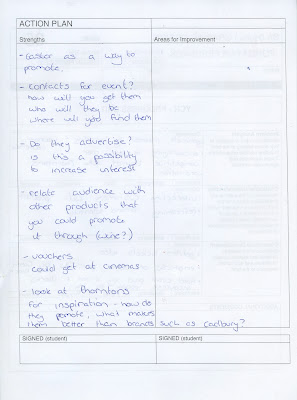 ACTION PLAN
Strengths
Areas for Improvement
- easter as a way to
promote.
- contacts for event?
how will you get them
who will they be
where will you find them
- Do they advertise?
is this a possibility
to increase interest
- relate audience with
other products that
you could promote
it through (wine?)
- vouchers
could get at cinemas
- look at thorntons
for inspiration - how do
they promote, what makes
them better than brands such as cadbury?
SIGNED (student)
SIGNED (student)